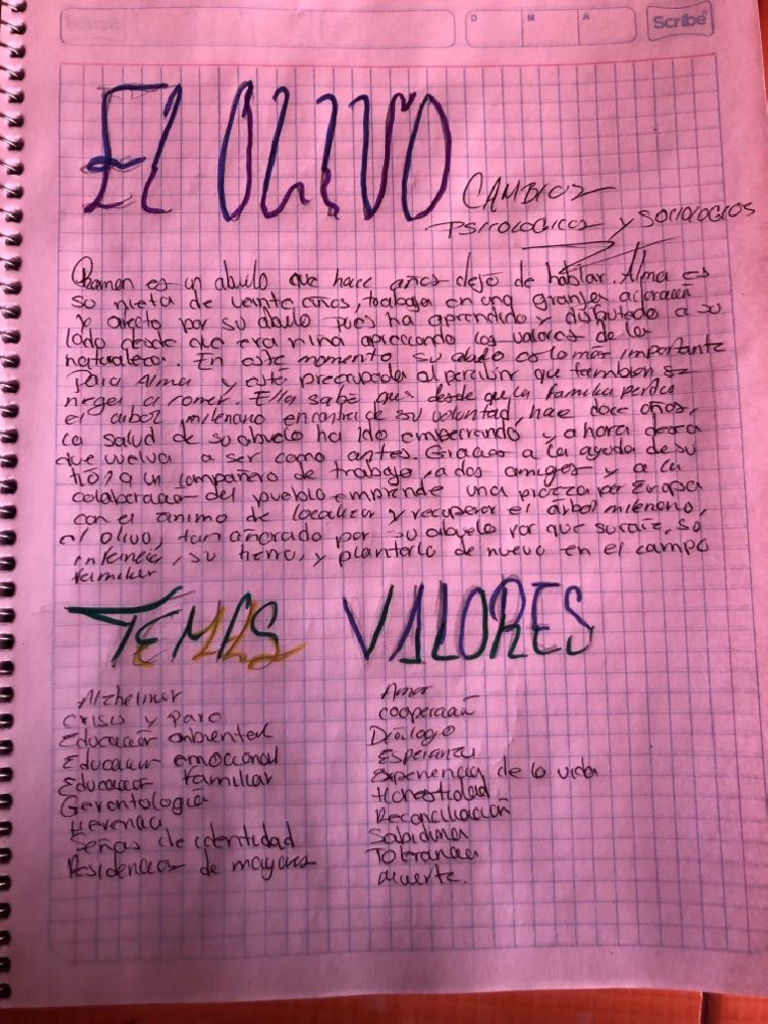 Scribe
D M A
EL OLIVO
CAMBIOS
PSICOLOGICOS Y SOCIOLOGICOS
Ramon es un abuelo que hace años dejó de hablar. Alma es
su nieta de veinte años, trabaja en una granja
y afecto por su abuelo pues ha aprendido y disfrutado a su
lado desde que era niña apreciando los valores de la
naturaleza. En este momento su abuelo es lo mas importante
para Alma y está preocupada al percibir que tambien se
niega a comer. Ella sabe que desde que la familia perdio
el arbol milenario en contra de su voluntad, hace doce años,
la salud de su abuelo ha ido empeorando y ahora desea
que vuelva a ser como antes. Gracias a la ayuda de su
tio, a un compañero de trabajo, a dos amigos y a la
colaboracion del pueblo emprende una por Europa
con el animo de localizar y recuperar el árbol milenario,
el olivo, tan añorado por su abuelo por que su raiz, su
infancia, su tierra, y plantarlo de nuevo en el campo
familiar
TEMAS VALORES
Alzheimer Amor
Crisis y paro cooperación
Educación ambiental Diálogo
Educacion emocional Esperanza
Educacion familiar Experiencia de la vida
Gerontologia Honestidad
Herencia Reconciliación
Señas de identidad Sabiduria
Residencias de mayores Tolerancia
Muerte.